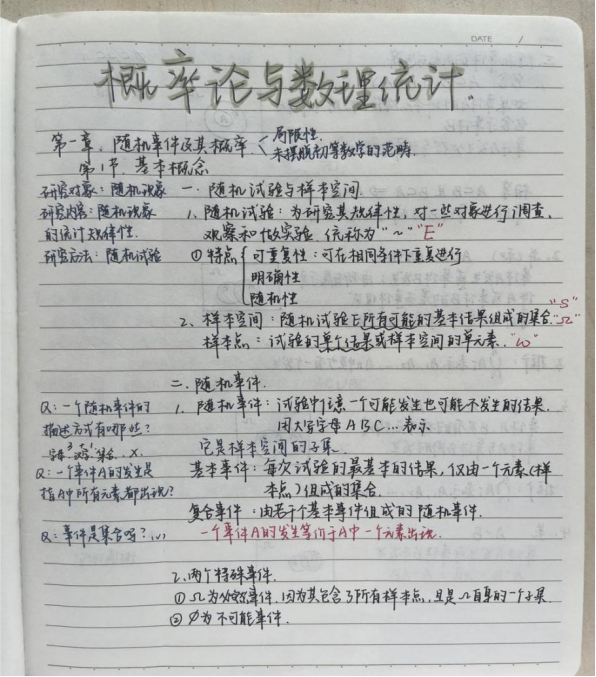 DATE /
概率论与数理统计.
第一章、随机事件及其概率 < 局限性.
未摆脱初等数学的范畴.
第1节、基本概念
研究对象：随机现象 一、随机试验与样本空间.
研究内容：随机现象 1、随机试验：为研究其规律性，对一些对象进行调查、
的统计规律性. 观察和做实验，统称为"~" "E"
研究方法：随机试验 ①特点 { 可重复性：可在相同条件下重复进行
明确性
随机性
"S"
2、样本空间：随机试验E所有可能的基本结果组成的集合."Ω"
样本点：试验的单个结果或样本空间的单元素."ω"
二、随机事件.
Q：一个随机事件的 1、随机事件：试验中 一个可能发生也可能不发生的结果.
描述方式有哪些？ 用大写字母ABC...表示
集合. 它是样本空间的子集.
Q：一个事件A的发生是 基本事件：每次试验的最基本的结果，仅由一个元素(样
指A中所有元素都出现？ 本点)组成的集合.
复合事件：由若干个基本事件组成的随机事件.
Q：事件是集合吗？ 一个事件A的发生等价于A中一个元素出现.
2、两个特殊事件.
①Ω为必然事件，因为其包含了所有样本点，且是Ω自身的一个子集.
②∅为不可能事件.